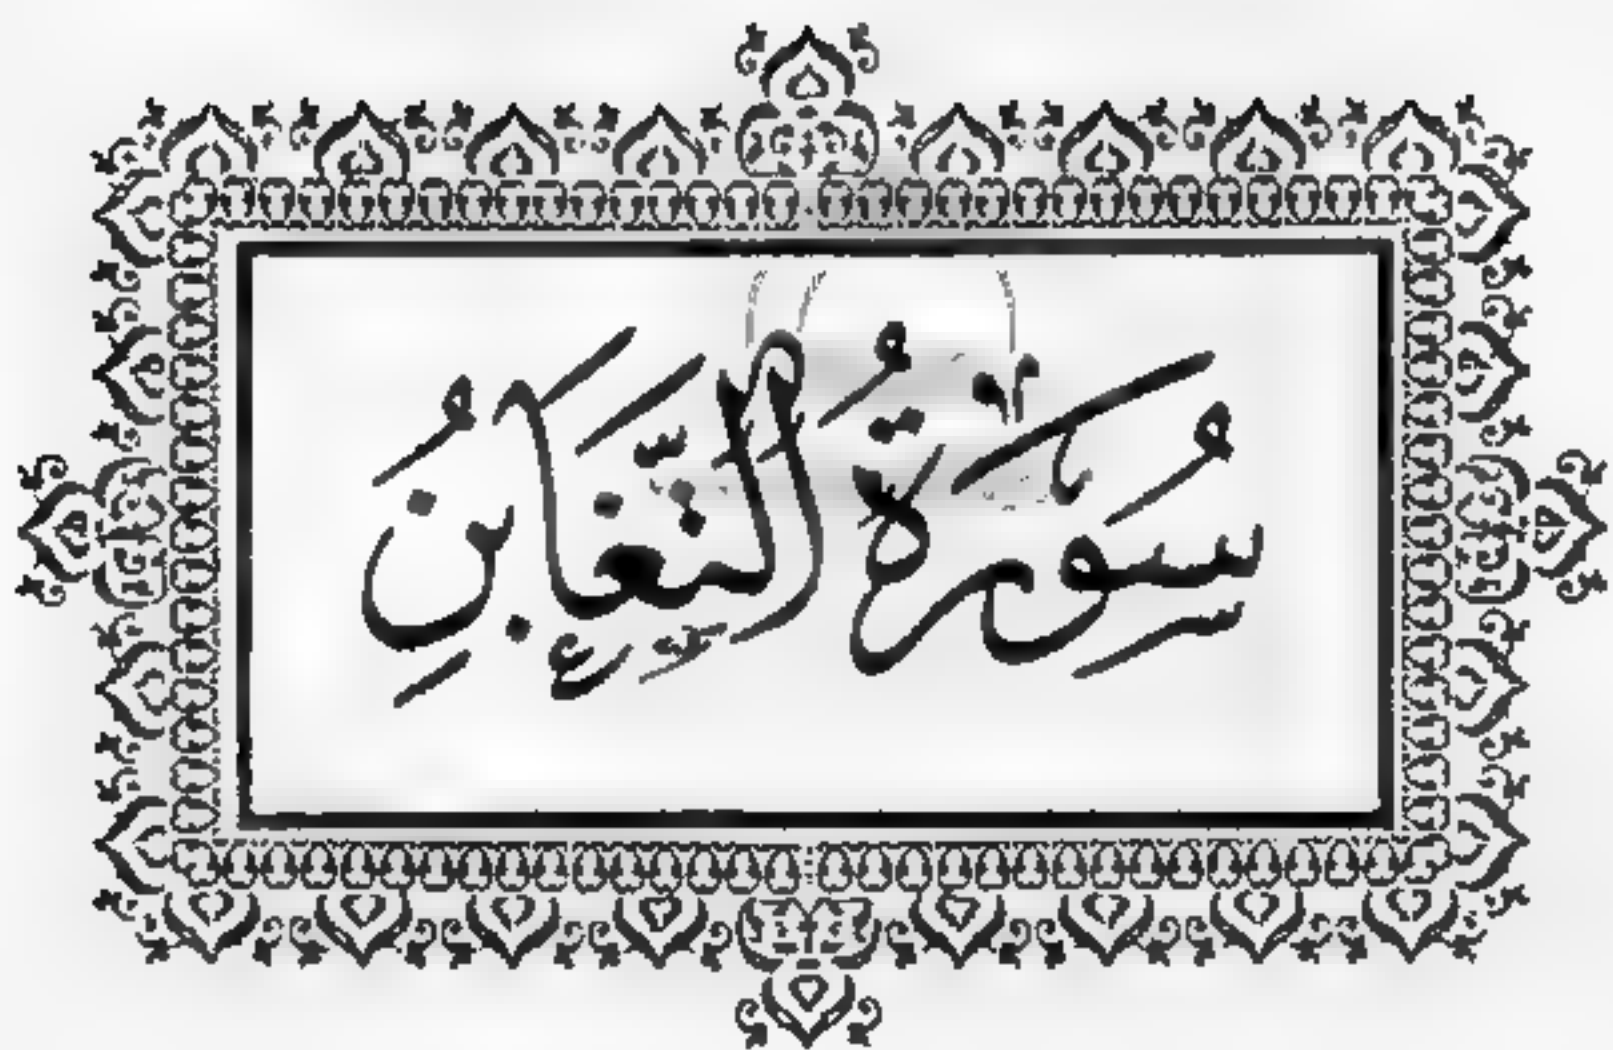 سُورَةُ التَّغَابُنِ